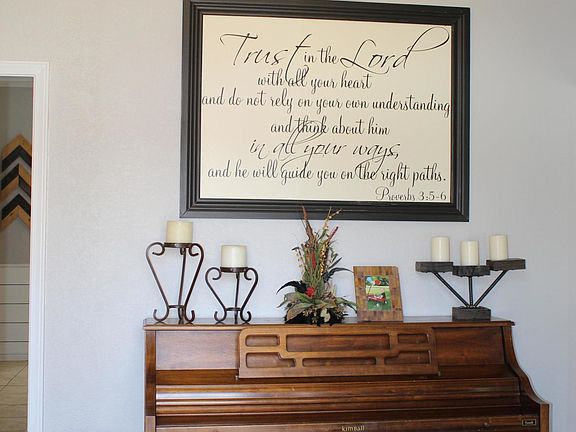 Trust in the Lord
with all your heart
and do not rely on your own understanding
and think about him
in all your ways,
and he will guide you on the right paths.
Proverbs 3:5-6
KIMBALL